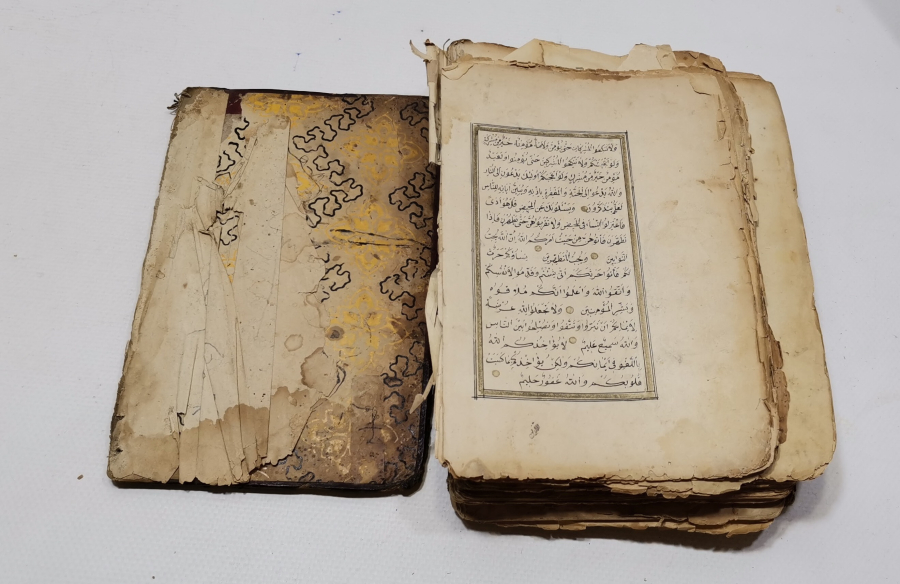 ولا تنكحوا المشركات حتى يؤمن ولامة مؤمنة خير من مشركة
ولو اعجبتكم ولا تنكحوا المشركين حتى يؤمنوا ولعبد
مؤمن خير من مشرك ولو اعجبكم اولئك يدعون الى النار
والله يدعوا الى الجنة والمغفرة باذنه ويبين اياته للناس
لعلهم يتذكرون ويسئلونك عن المحيض قل هو اذى
فاعتزلوا النساء في المحيض ولا تقربوهن حتى يطهرن فاذا
تطهرن فاتوهن من حيث امركم الله ان الله يحب
التوابين ويحب المتطهرين نساؤكم حرث
لكم فاتوا حرثكم انى شئتم وقدموا لانفسكم
واتقوا الله واعلموا انكم ملاقوه
وبشر المؤمنين ولا تجعلوا الله عرضة
لايمانكم ان تبروا وتتقوا وتصلحوا بين الناس
والله سميع عليم لا يؤاخذكم الله
باللغو في ايمانكم ولكن يؤاخذكم بما كسبت
قلوبكم والله غفور حليم